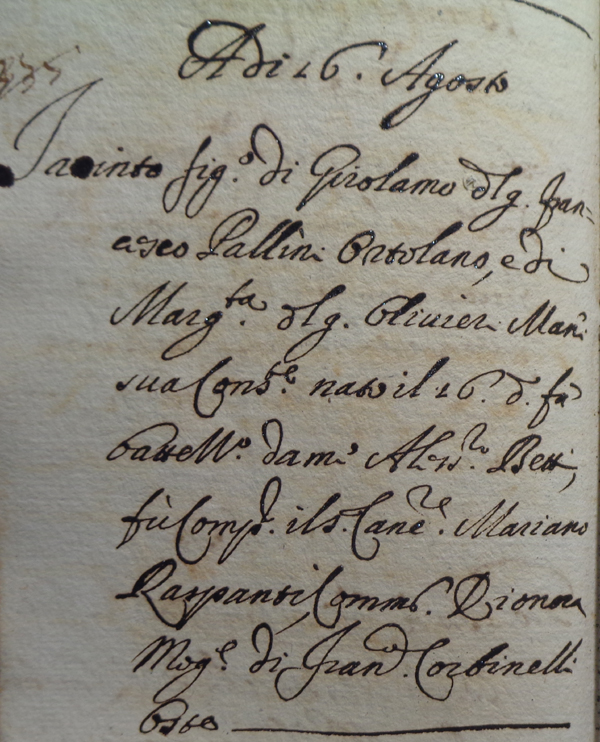 335
A di 26. Agosto
Jacinto fig.º di Girolamo dlg. fran=
cesco Pallini Ortolano, e di
Marg.ta dlg. Olivieri Mani
sua Cons.te nato il 26. d. fù
batte.º da me Aless.ro Betti,
fù Comp.e il s. Canc.re Mariano
Raspanti, Comm.e Dionora
Mog.e di Fran.co Corbinelli
Oste